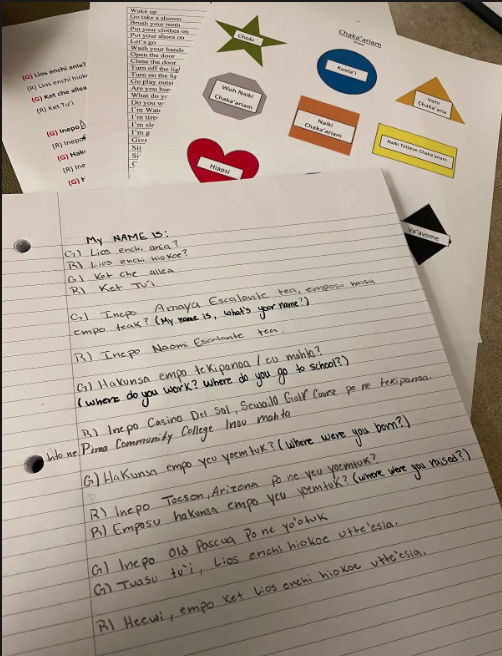 (G) Lios enchi ania?
(R) Lios enchi hiok
(G) Ket che allea
(R) Ket Tu'i
(G) Inepo
(R) Inepo
(G) Haku
(R) Ine
(G)
Wake up
Go take a shower
Brush your teeth
Put your clothes on
Put your shoes on
Let's go
Wash your hands
Open the door
Close the door
Turn off the lig
Turn on the lig
Go play outsi
Are you hun
What do yo
Do you w
I'm Wait
I'm tire
I'm sle
I'm g
Give
Sit
Si
Chaka'ariam
Choki
Woh Naiki
Chaka'ariam
Naiki
Chaka'ariam
Vahi
Chaka'aria
Naiki Teteeve Chaka'ariam
Hiapsi
Va'avome
My NAME IS:
G) Lios enchi ania?
R) Lios enchi hiokoe?
G) Ket che allea
R) Ket Tu'i
G) Inepo Amaya Escalante tea, emposu haisa
empo teak? (My name is, what's your name?)
R) Inepo Naomi Escalante tea.
G) Hakunsa empo tekipanoa / eu mahta?
(Where do you work? Where do you go to school?)
R) Inepo Casino Del Sol, Sewailo Golf Course po ne tekipanoa.
Pima Community College Inou mahta
G) Hakunsa empo yeu yoemtuk? (Where were you born?)
R) Inepo Tucson, Arizona po ne yeu yoemtuk?
R) Emposu hakunsa empo yeu yoemtuk? (where were you raised?)
G) Inepo Old Pascua Po ne yo'otuk
G) Tuasu tu'i, Lios enchi hiokoe utte'esia.
R) Heewi, empo ket Lios enchi hiokoe utte'esia.